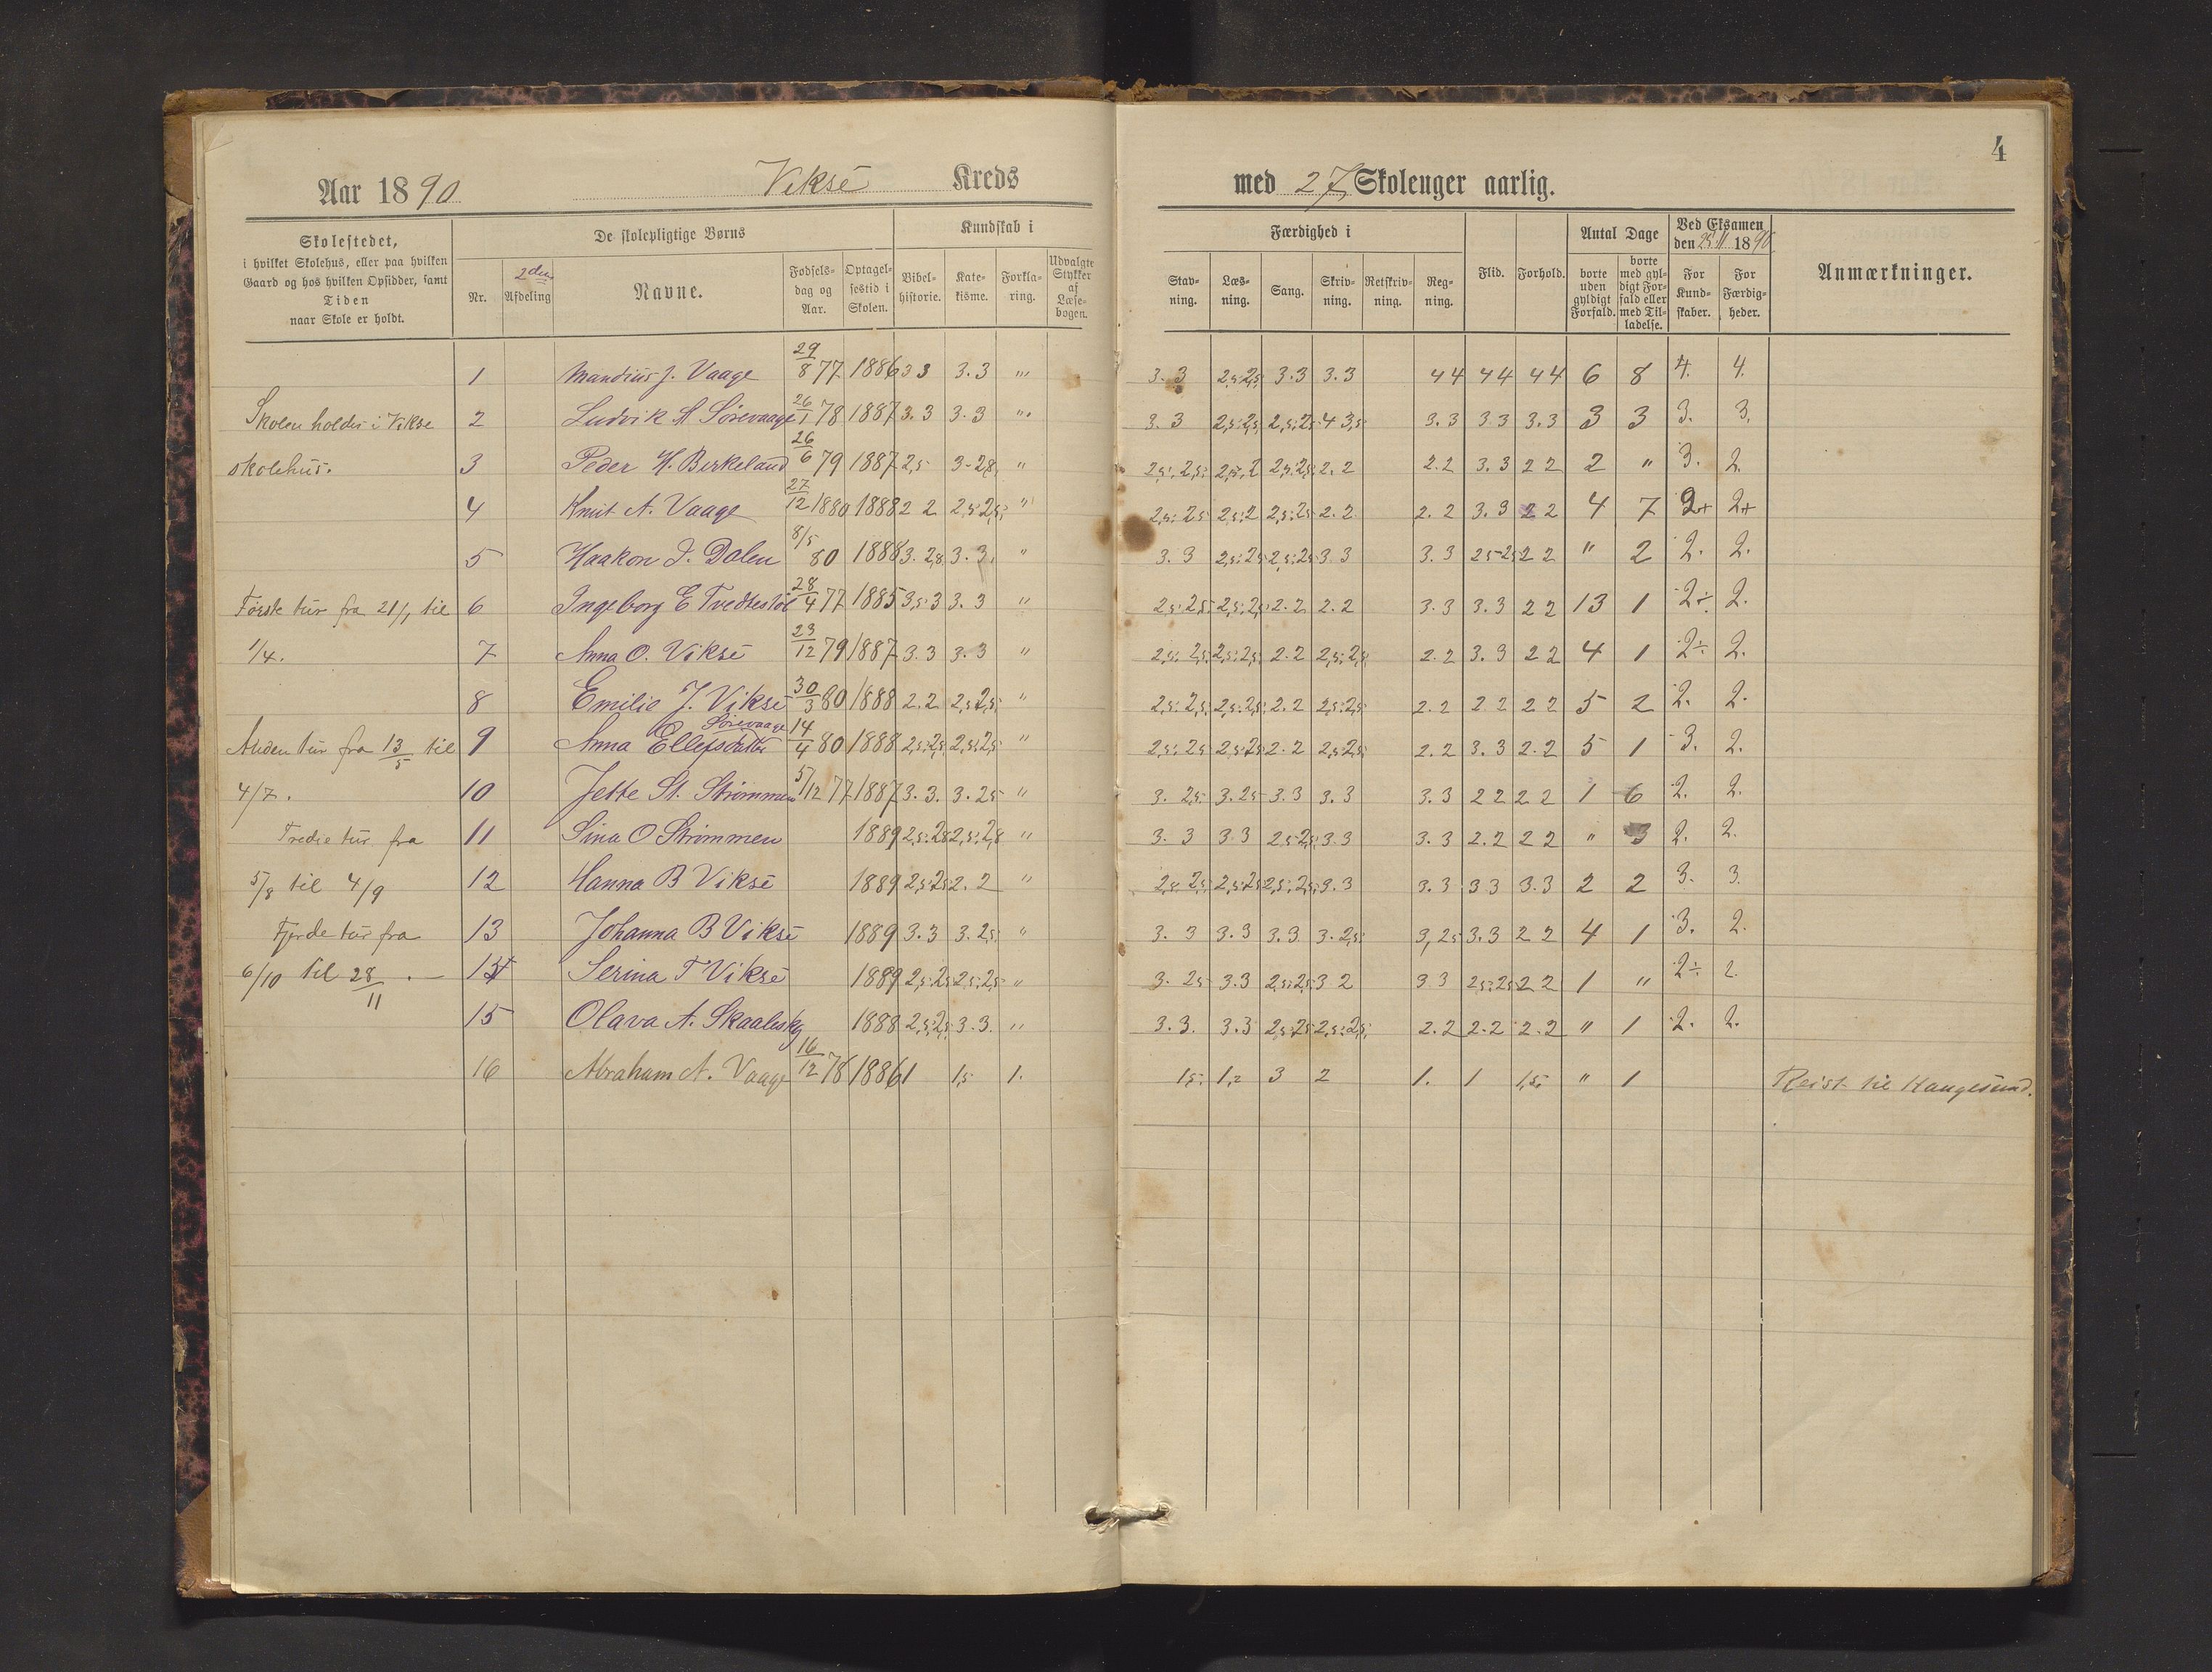 4
Aar 1890 Viksé Kreds med 27 Skoleuger aarlig.
Skolestedet,
i hvilket Skolehus, eller paa hvilken
Gaard og hos hvilken Opsidder, samt
Tiden
naar Skole er holdt.
De skolepligtige Børns
Nr.
2den
Afdeling
Navne.
Fødsels-
dag og
Aar.
Optagel-
sestid i
Skolen.
Kundskab i
Bibel-
historie.
Kate-
kisme.
Forkla-
ring.
Udvalgte
Stykker
af
Læse-
bogen.
Færdighed i
Stav-
ning.
Læs-
ning.
Sang.
Skriv-
ning.
Retskriv-
ning.
Reg-
ning.
Flid.
Forhold.
Antal Dage
borte
uden
gyldigt
Forfald.
borte
med gyl-
digt For-
fald eller
med Til-
ladelse.
Ved Eksamen
den 25/11 1890
For
Kund-
skaber.
For
Færdig-
heder.
Anmærkninger.
1 Mandius J. Vaage 29/8 77 1886 3 3 3.3 " 3.3 2,5.2,5 3.3 3.3 4 4 4 4 4 4 6 8 4. 4.
Skolen holdes i Vikse 2 Ludvik M Sørevaage 26/1 78 1887 3.3 3.3 " 3.3 2,5.2,5 2,5.2,5 4 3,5 3.3 3.3 3.3 3 3 3. 3.
skolehus. 3 Peder H. Birkeland 26/6 79 1887 2,5 3-2,8 " 2,5.2,5 2,5.2 2,5.2,5 2.2 2.2 3.3 2 2 2 " 3. 2.
4 Knut A. Vaage 27/12 1880 1888 2 2 2,5.2,5 " 2,5.2,5 2,5.2 2,5.2,5 2.2 2.2 3.3 2 2 4 7 2+ 2+
5 Haakon J. Dalen 8/5 80 1888 3.2,8 3.3. " 3.3 2,5.2,5 2,5.2,5 3.3 3.3 25-25 2 2 " 2 2. 2.
Første tur fra 21/1 til 6 Ingeborg E Tvedtestøl 28/4 77 1885 3,5.3 3.3 " 2,5.2,5 2,5.2,5 2.2 2.2 3.3 3.3 2 2 13 1 2÷ 2.
1/4. 7 Anna O. Viksé 23/12 79 1887 3.3 3.3 " 2,5.2,5 2,5.2,5 2.2 2,5.2,8 2.2 3.3 2 2 4 1 2÷ 2.
8 Emilie J. Viksé 30/3 80 1888 2.2 2,5.2,5 " 2,5.2,5 2,5.2,5 2.2 2,5.2,5 2.2 2 2 2 2 5 2 2. 2.
Sørevaage
Anden tur fra 13/5 til 9 Anna Ellefsdatter 14/4 80 1888 2,5.2,5 2,5.2,5 " 2,5.2,5 2,5.2,5 2.2 2,5.2,5 2.2 3.3 2.2 5 1 3. 2.
4/7. 10 Jette St. Strømmen 5/12 77 1887 3.3. 3.25 " 3.25 3.25 3.3 3.3 3.3 2 2 2 2 1 6 2. 2.
Tredie tur fra 11 Sina O Strømmen 1889 2,5.2,8 2,5.2,8 " 3.3 3.3 25-2,5 3.3 3.3 2.2 2 2 " 3 2. 2.
5/8 til 4/9 12 Hanna B Viksé 1889 2,5.25 2.2 " 2,8 2,5 2,5.25 2,5.2,5 3.3 3.3 3 3 3.3 2 2 3. 3.
Fjerde tur fra 13 Johanna B Viksé 1889 3.3 3.25 " 3.3 3.3 3.3 3.2,5 3,25 3.3 2 2 4 1 3. 2.
6/10 til 28/11. — 14 Serina T Viksé 1889 2,5.25 25.2,5 " 3.25 3.3 2,5.2,5 3 2 3 3 25.25 2 2 1 " 2÷ 2.
15 Olava A. Skaaleskg 1888 2,5.2,5 3.3. " 3.3. 3.3 25.25 2,5.2,5 2.2 2.2 2.2 " 1 2. 2.
16 Abraham A. Vaage 16/12 78 1886 1 1,5 1. 1,5 1,2 3 2 1. 1 1,5 " 1 Reist til Haugesund.